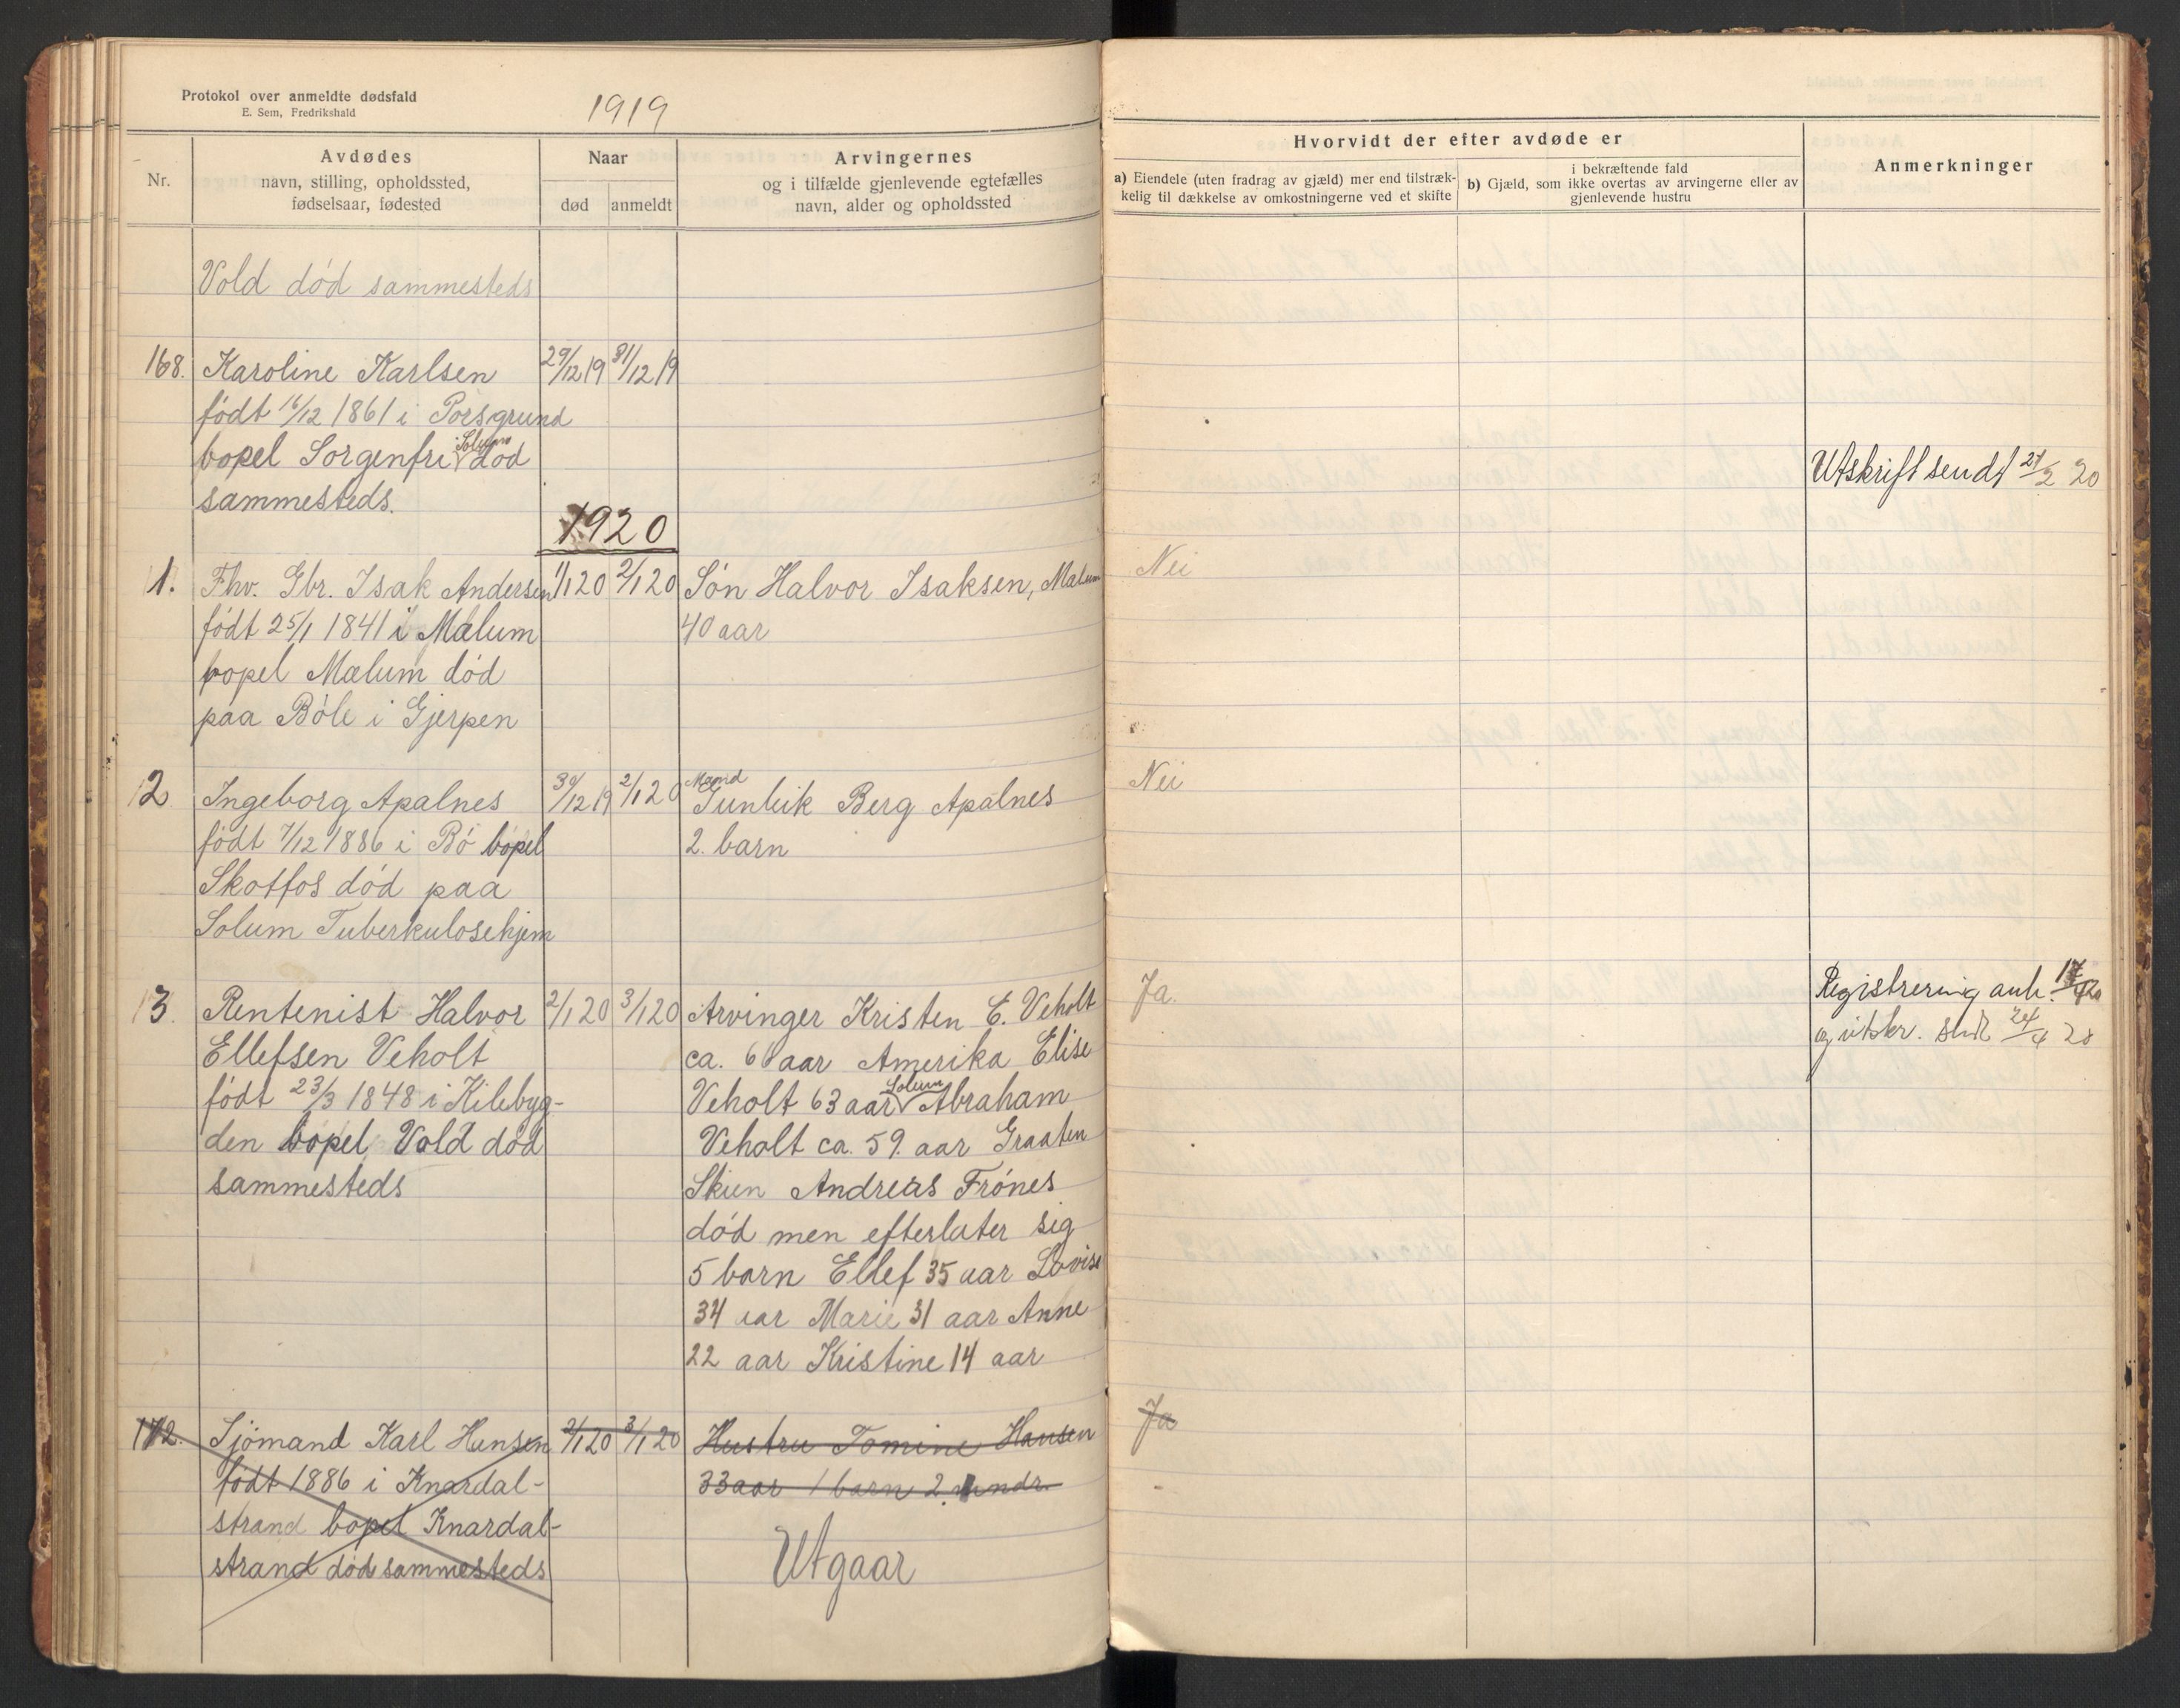 Protokol over anmeldte dødsfald
E. Sem, Fredrikshald
1919
Nr.
Avdødes
navn, stilling, opholdssted,
fødselsaar, fødested
Naar
død
anmeldt
Arvingernes
og i tilfælde gjenlevende egtefælles
navn, alder og opholdssted
Hvorvidt der efter avdøde er
a) Eiendele (uten fradrag av gjæld) mer end tilstræk-
kelig til dækkelse av omkostningerne ved et skifte
i bekræftende fald
b) Gjæld, som ikke overtas av arvingerne eller av
gjenlevende hustru
Anmerkninger
Vold død sammesteds
168. Karoline Karlsen 29/12 19 31/12 19
født 16/12 1861 i Porsgrund
Solum
bopel Sorgenfri død
sammesteds.
Utskrift sendt 27/2 20
1920
1. Fhv. Gbr. Isak Andersen 1/1 20 2/1 20 Søn Halvor Isaksen, Mælum Nei
født 25/1 1841 i Mælum 40 aar
bopel Mælum død
paa Bøle i Gjerpen
Mand
2 Ingeborg Apalnes 30/12 19 2/1 20 Gunleik Berg Apalnes Nei
født 7/12 1886 i Bø bopel 2. barn
Skotfos død paa
Solum Tuberkulosehjem
3. Rentenist Halvor 2/1 20 3/1 20 Arvinger Kristen E. Veholt Ja. Registrering anh. 17/4 20
Ellefsen Veholt ca. 68 aar Amerika Elise og utskr. 24/4 20
Solum
født 23/3 1848 i Kilebyg- Veholt 63 aar Abraham
den bopel Vold død Veholt ca. 59. aar Graaten
sammesteds Skien Andreas Frønes
død men efterlater sig
5 barn Ellef 35 aar Lovise
34 aar Marie 31 aar Anne
22 aar Kristine 14 aar
172. Sjømand Karl Hansen 2/1 20 3/1 20 Hustru Tomine Hansen Ja
født 1886 i Knardal- 33 aar 1 barn 2 mndr.
strand bopel Knardal-
strand død sammesteds
Utgaar